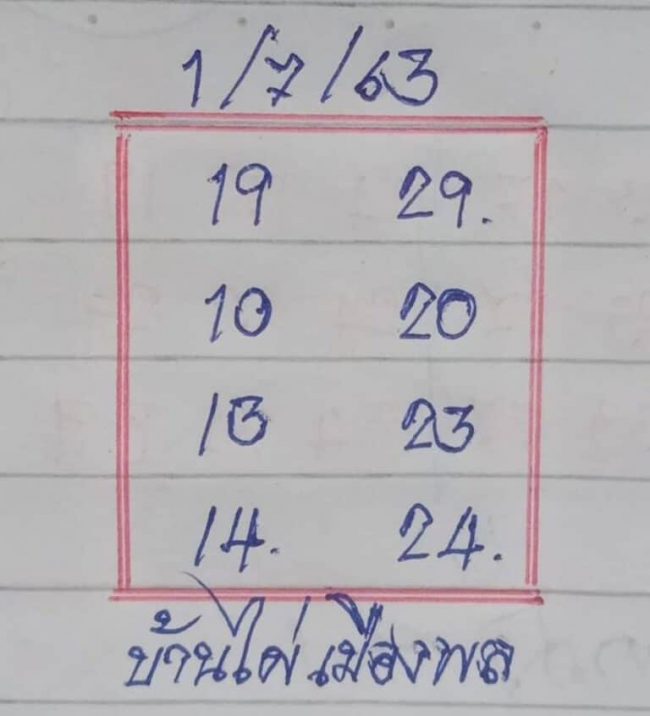 1/7/63
19 29.
10 20
13 23
14. 24.
บ้านไผ่ เมืองพล